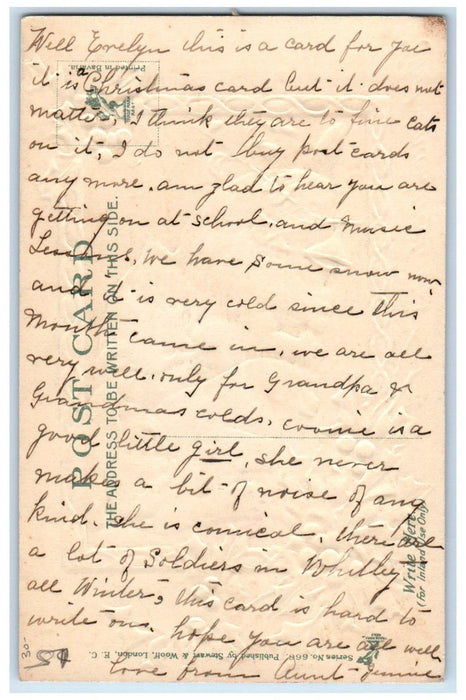 Well Evelyn this is a card for you
it is a Christmas card but it does not
matter, I think they are to fine cats
on it, I do not buy post cards
any more. am glad to hear you are
getting on at school, and music
Lessons, we have some snow now
and it is very cold since this
month came in, we are all
very well. only for Grandpa &
Grandmas colds, is a
good little girl, she never
makes a bit of noise of any
kind. she is comical, there are
a lot of Soldiers in Whitley
all Winter, this card is hard to
write on. hope you are all well
Love from Aunt Jennie
POST CARD
THE ADDRESS TO BE WRITTEN ON THIS SIDE.
Printed in Bavaria.
Write Here
(For Inland Use Only)
Series No. 566. Published by Stewart & Woolf, London, E. C.
30-